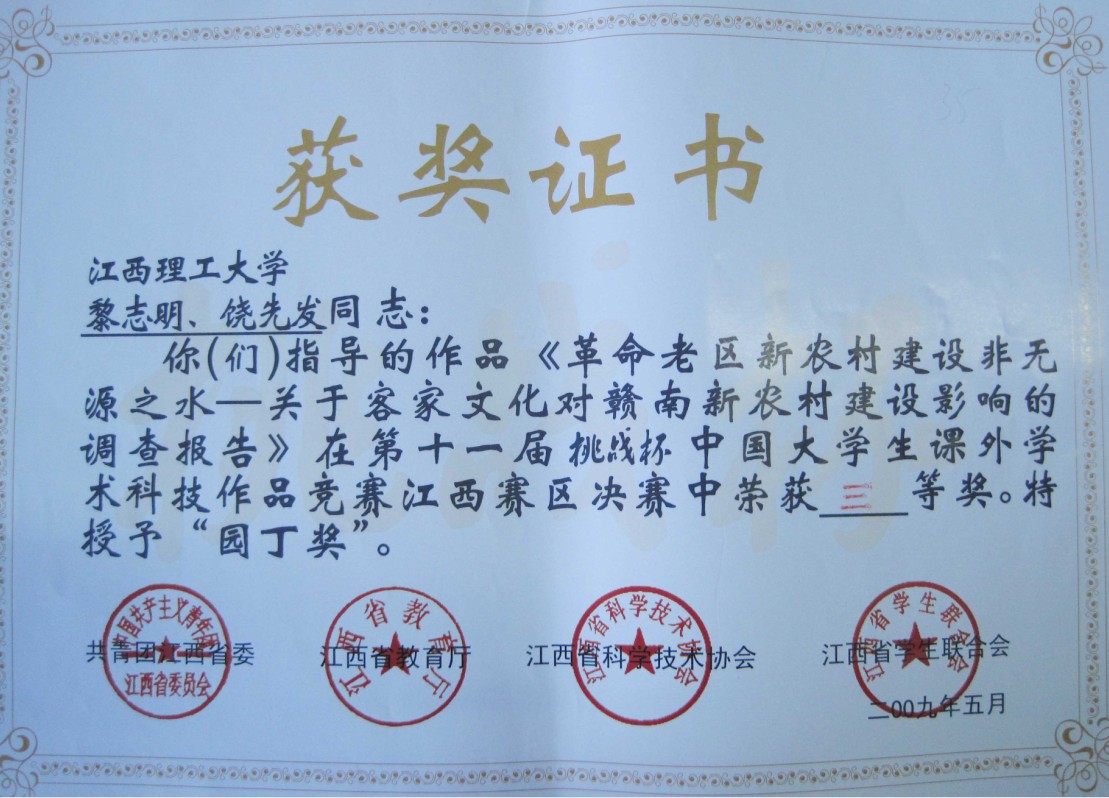 35
获奖证书
江西理工大学
黎志明、饶先发同志：
你(们)指导的作品《革命老区新农村建设非无
源之水—关于客家文化对赣南新农村建设影响的
调查报告》在第十一届挑战杯中国大学生课外学
术科技作品竞赛江西赛区决赛中荣获三等奖。特
授予“园丁奖”。
中国共产主义青年团
江西省委员会
共青团江西省委
江西省教育厅
江西省教育厅
江西省科学技术协会
江西省科学技术协会
江西省学生联合会
江西省学生联合会
二00九年五月